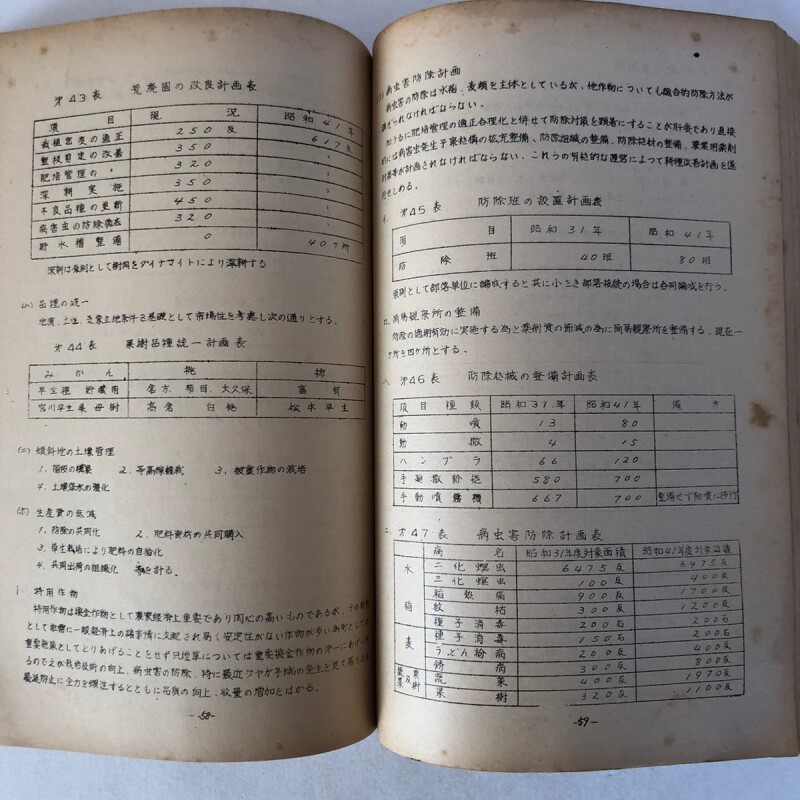 第43表 荒廃園の改良計画表
項目 現況 昭和41年
栽植密度の適正 250反 617反
整枝剪定の改善 350 〃
肥培管理の〃 320 〃
深耕実施 350 〃
不良品種の更新 450 〃
病害虫の防除徹底 320 〃
貯水槽整備 0 40ケ所
深耕は原則として樹間をダイナマイトにより深耕する
(ハ) 品種の統一
地質、土性、気象立地条件を基礎として市場性を考慮し次の通りとする。
第44表 果樹品種統一計画表
みかん 桃 柿
早生種 貯蔵用 倉方、稲田、大久保 富有
宮川早生 高倉 白桃 松本早生
(ニ) 傾斜地の土壌管理
1. 階段の構築 2. 等高線栽植 3. 被覆作物の栽培
4. 土壌保水の強化
(ホ) 生産費の低減
1. 防除の共同化 2. 肥料資材の共同購入
3. 草生栽培により肥料の自給化
4. 共同出荷の組織化 等を計る。
i 特用作物
特用作物は換金作物として農家経済上重要であり関心の高いものであるが、その
として非常に一般経済上の諸事情に支配され易く安定性がない作物が多い
重要施策としてとりあげることをせず只
るので之が栽培技術の向上、病虫害の防除、特に最近
蔓延防止に全力を傾注するとともに品質の向上、収量の増加をはかる。
-58-
病虫害防除計画
病虫害の防除は水稲、麦類を主体としているが、他作物についても総合的防除方法が
講ぜられなければならない。
肥培管理の適正合理化と併せて防除対策を顕著にすることが肝要であり直接
的には病害虫発生予察機構の拡充整備、防除組織の整備、防除器材の整備、農業用薬剤
対策等が計画されなければならない、これらの有機的な運営によつて
せしめる。
イ、第45表 防除班の設置計画表
項目 昭和31年 昭和41年
防除班 40班 80班
原則として部落単位に編成すると共に小さき部落接続の場合は合同編成を行う。
ロ、簡易観察所の整備
防除の適期有効に実施する為と薬剤費の節減の為に簡易観察所を整備する、現在一
ケ所を四ケ所とする。
ハ、第46表 防除器械の整備計画表
項目種類 昭和31年 昭和41年 備考
動噴 13 80
動撒 4 15
ハンプラ 66 120
手廻撒粉送 580 700
手動噴霧機 667 700 整備せず動噴に移行
ニ、第47表 病虫害防除計画表
病名 昭和31年度対象面積 昭和41年度対象面積
水稲 二化螟虫 6475反 6475反
三化螟虫 100反 400反
稲熱病 900反 1700反
紋枯 300反 1200反
種子消毒 200石 200石
麦 種子消毒 150石 200石
うどん粉病 200反 400反
銹病 300反 800反
蔬菜及果樹 蔬菜 400反 1970反
果樹 320反 1100反
-59-